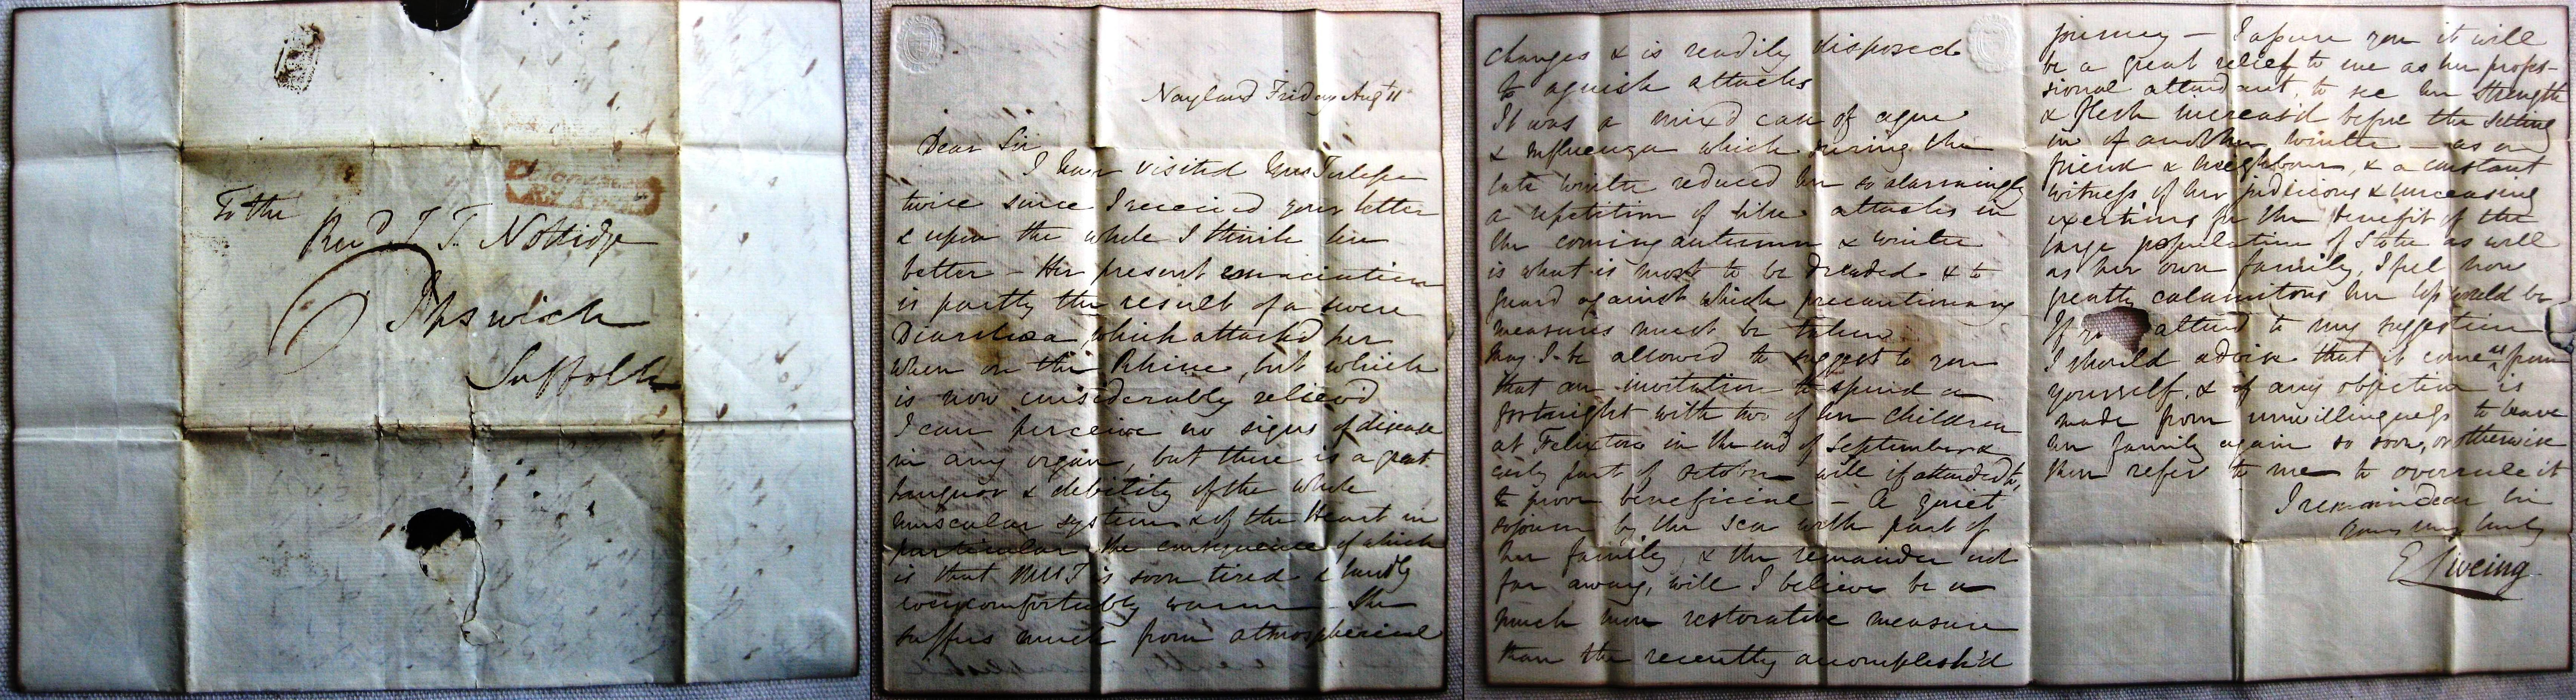 To the
Revd J. T. Nottidge
Ipswich
Suffolk
Nayland Friday Augt 11
Dear Sir
I have visited Mrs Torlesse
twice since I received your letter
& upon the whole I think her
better – Her present emaciation
is partly the result of a severe
Diarrhœa, which attack'd her
when on the Rhine, but which
is now considerably reliev'd
I can perceive no signs of disease
in any organ, but there is a great
languor & debility of the whole
muscular system & of the Heart in
particular the consequence of which
is that Mrs T is soon tired & hardly
ever comfortably warm – She
suffers much from atmospherical
changes & is readily disposed
to aguish attacks
It was a mix'd case of ague
& Influenza which during the
late winter reduced her so alarmingly
a repetition of like attacks in
the coming autumn & winter
is what is most to be dreaded & to
guard against which precautionary
measures must be taken
May I be allowed to suggest to you
that an invitation to spend a
fortnight with two of her children
at Felixtow in the end of September &
early part of October will if attended to,
prove beneficial – A quiet
sojourn by the sea with part of
her family, & the remainder not
far away, will I believe be a
much more restorative measure
than the recently accomplish'd
journey – I assure you it will
be a great relief to me as her profes-
sional attendant, to see her strength
& flesh increas'd before the setting
in of another winter – as a
friend & neighbour, & a constant
witness of her judicious & unceasing
exertions for the benefit of the
large population of Stoke as well
as her own family, I feel how
greatly calamitous her loss would be
If attend to my suggestion
I should advise that it come as from
yourself, & if any objection is
made from unwillingness to leave
her family again so soon, or otherwise
then refer to me to overrule it
I remain dear Sir
Yours very truly
E Liveing